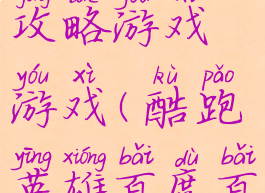 攻略游戏
yóu xì kù pǎo
游戏(酷跑
yīng xióng bǎi dù bǎi
英雄百度百